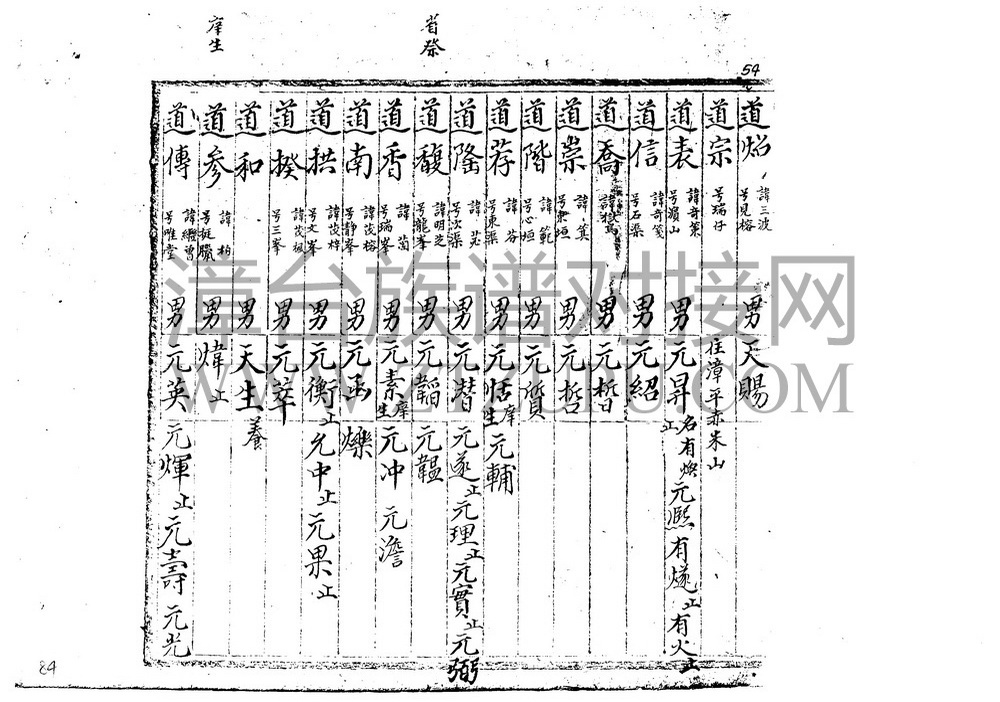 省祭
庠生
54
道焰 諱三波 号見榕 男 天賜
道宗 号瑞仔 住漳平赤朱山
道表 諱奇策 号瀕山 男 元昇 名有燦 止 元熙 有燧 止 有火 止
道信 諱奇箋 号石渠 男 元紹
道喬 男 元哲
道崇 諱箕 号東垣 男 元哲
道階 諱範 号心垣 男 元質
道荐 諱芬 号東渠 男 元恬 庠生 元輔
道隆 諱苾 号次渠 男 元潜 元遂 止 元理 止 元實 止 元弼
道馥 諱明芝 号龍峯 男 元韜 元韞
道香 諱菌 号瑞峯 男 元素 庠生 元冲 元澹
道南 諱茂榕 号静峯 男 元函 爍
道拱 諱茂梓 号文峯 男 元衡 止 允中 止 元果 止
道揆 諱茂椒 号三峯 男 元萃
道和 男 天生 養
道參 諱柏 号挺臘 男 煒 止
道傳 諱繼曾 号唯堂 男 元英 元煇 止 元壽 元光
84
漳台族谱对接网
WWW.ZTZUPU.COM